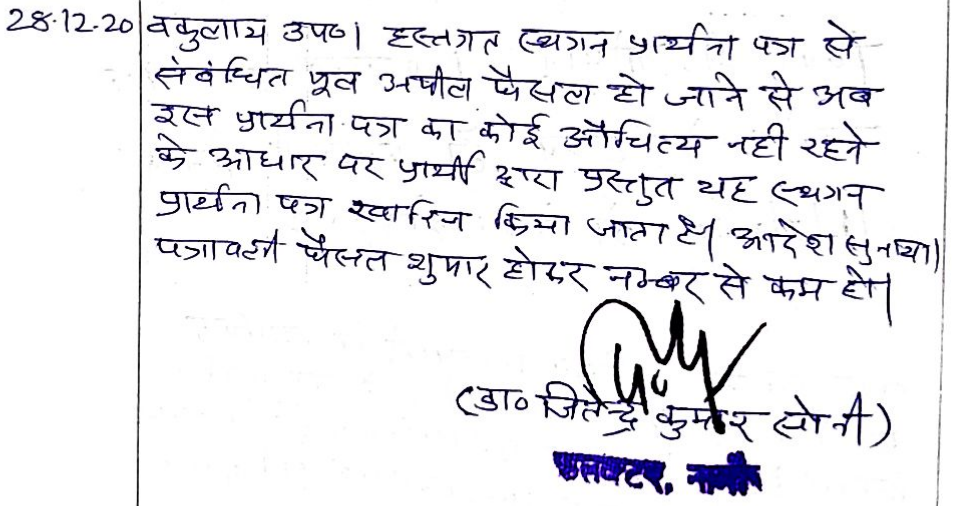 28.12.20 वकुलाय उप०। हस्तगत स्थगन प्रार्थना पत्र से
संबंधित मूल अपील फैसल हो जाने से अब
इस प्रार्थना पत्र का कोई औचित्य नही रहने
के आधार पर प्रार्थी द्वारा प्रस्तुत यह स्थगन
प्रार्थना पत्र खारिज किया जाता है। आदेश सुनाया।
पत्रावली फैसल शुमार होकर नम्बर से कम हो।
(डा० जितेन्द्र कुमार सोनी)
कलक्टर, नागौर